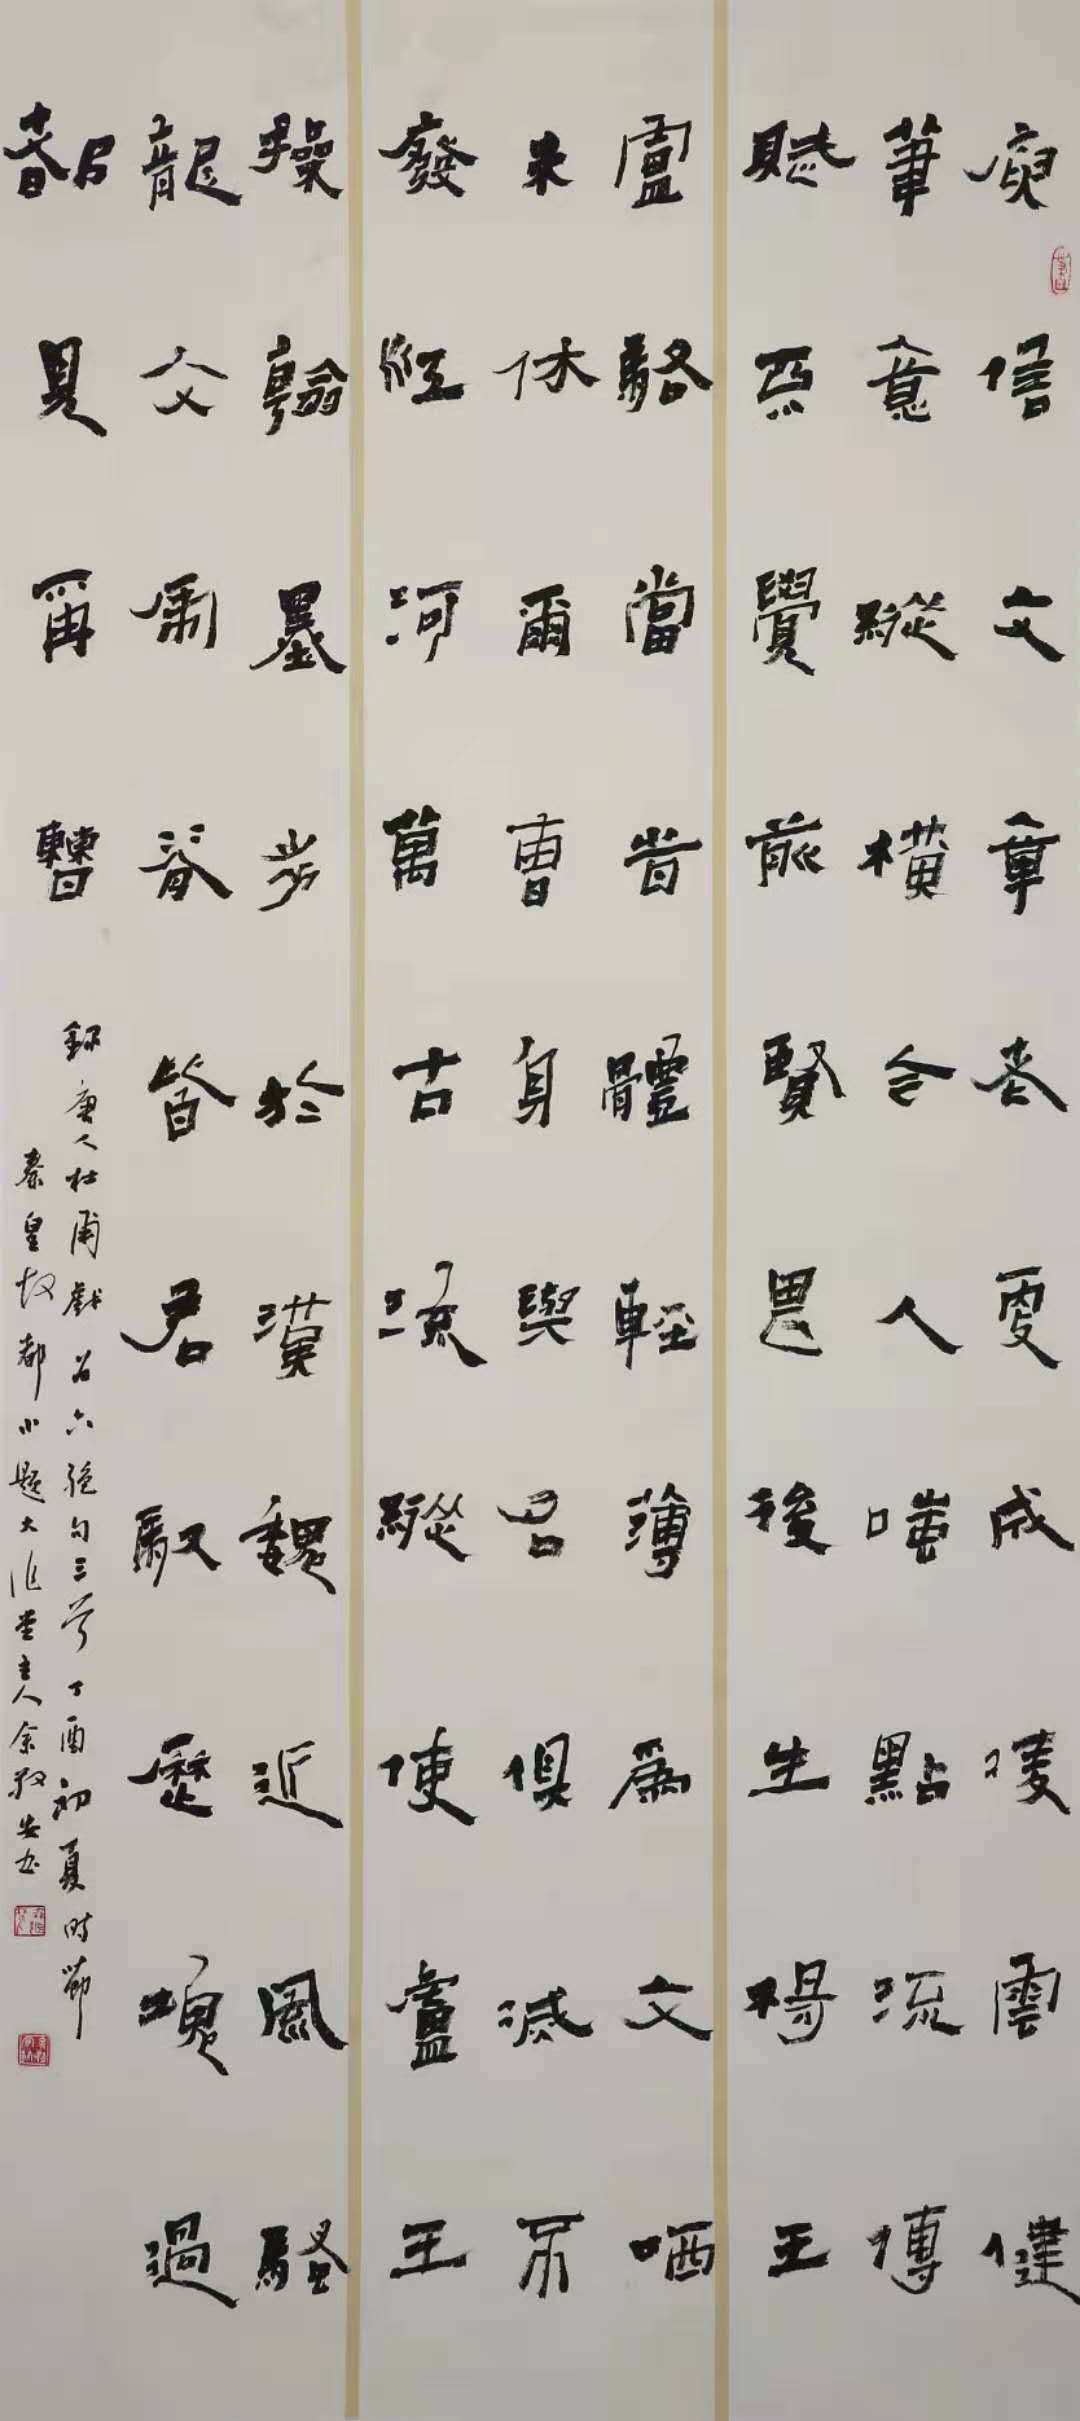 庾信文章老更成凌雲健
筆意縱橫今人嗤點流傳
賦不覺前賢畏後生楊王
盧駱當時體輕薄爲文哂
未休爾曹身與名俱滅不
廢江河萬古流縱使盧王
操翰墨劣於漢魏近風騷
龍文虎脊皆君馭歷塊過
都見爾曹
錄唐人杜甫戲為六絕句三首丁酉初夏時節
秦皇故都小題大作堂主人余安書